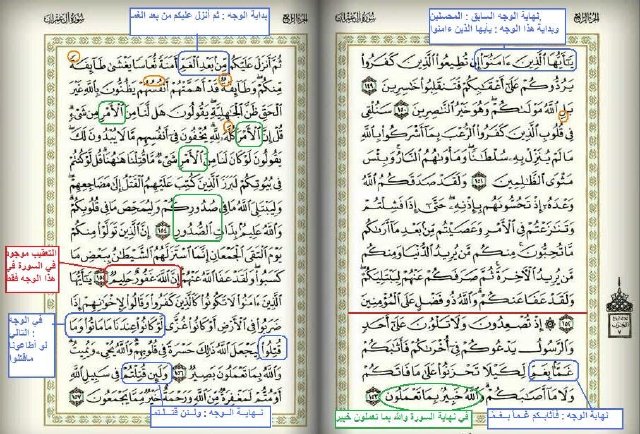 الجزء الرابع
سورة آل عمران
نهاية الوجه السابق : المحصلين
وبداية هذا الوجه : يأيها الذين ءامنوا
يَٰٓأَيُّهَا ٱلَّذِينَ ءَامَنُوٓا۟ إِن تُطِيعُوا۟ ٱلَّذِينَ كَفَرُوا۟
يَرُدُّوكُمْ عَلَىٰٓ أَعْقَٰبِكُمْ فَتَنقَلِبُوا۟ خَٰسِرِينَ ١٤٩
بَلِ ٱللَّهُ مَوْلَىٰكُمْ وَهُوَ خَيْرُ ٱلنَّٰصِرِينَ ١٥٠ سَنُلْقِى
فِى قُلُوبِ ٱلَّذِينَ كَفَرُوا۟ ٱلرُّعْبَ بِمَآ أَشْرَكُوا۟ بِٱللَّهِ
مَا لَمْ يُنَزِّلْ بِهِۦ سُلْطَٰنًا وَمَأْوَىٰهُمُ ٱلنَّارُ وَبِئْسَ
مَثْوَى ٱلظَّٰلِمِينَ ١٥١ وَلَقَدْ صَدَقَكُمُ ٱللَّهُ
وَعْدَهُۥٓ إِذْ تَحُسُّونَهُم بِإِذْنِهِۦ حَتَّىٰٓ إِذَا فَشِلْتُمْ
وَتَنَٰزَعْتُمْ فِى ٱلْأَمْرِ وَعَصَيْتُم مِّنۢ بَعْدِ مَآ أَرَىٰكُم
مَّا تُحِبُّونَ مِنكُم مَّن يُرِيدُ ٱلدُّنْيَا وَمِنكُم
مَّن يُرِيدُ ٱلْءَاخِرَةَ ثُمَّ صَرَفَكُمْ عَنْهُمْ لِيَبْتَلِيَكُمْ
وَلَقَدْ عَفَا عَنكُمْ وَٱللَّهُ ذُو فَضْلٍ عَلَى ٱلْمُؤْمِنِينَ
١٥٢ إِذْ تُصْعِدُونَ وَلَا تَلْوُۥنَ عَلَىٰٓ أَحَدٍ
وَٱلرَّسُولُ يَدْعُوكُمْ فِىٓ أُخْرَىٰكُمْ فَأَثَٰبَكُمْ
غَمًّۢا بِغَمٍّ لِّكَيْلَا تَحْزَنُوا۟ عَلَىٰ مَا فَاتَكُمْ
وَلَا مَآ أَصَٰبَكُمْ وَٱللَّهُ خَبِيرٌۢ بِمَا تَعْمَلُونَ ١٥٣
نهاية الوجه : فأثابكم غماً بغم
في نهاية السورة والله بما تعملون خبير
الحزب
٧
الجزء الرابع
سورة آل عمران
بداية الوجه : ثم أنزل عليكم من بعد الغم
ثُمَّ أَنزَلَ عَلَيْكُم مِّنۢ بَعْدِ ٱلْغَمِّ أَمَنَةً نُّعَاسًا يَغْشَىٰ طَآئِفَةً
مِّنكُمْ وَطَآئِفَةٌ قَدْ أَهَمَّتْهُمْ أَنفُسُهُمْ يَظُنُّونَ بِٱللَّهِ غَيْرَ
ٱلْحَقِّ ظَنَّ ٱلْجَٰهِلِيَّةِ يَقُولُونَ هَل لَّنَا مِنَ ٱلْأَمْرِ مِن شَىْءٍ
قُلْ إِنَّ ٱلْأَمْرَ كُلَّهُۥ لِلَّهِ يُخْفُونَ فِىٓ أَنفُسِهِم مَّا لَا يُبْدُونَ لَكَ
يَقُولُونَ لَوْ كَانَ لَنَا مِنَ ٱلْأَمْرِ شَىْءٌ مَّا قُتِلْنَا هَٰهُنَا قُل لَّوْ كُنتُمْ
فِى بُيُوتِكُمْ لَبَرَزَ ٱلَّذِينَ كُتِبَ عَلَيْهِمُ ٱلْقَتْلُ إِلَىٰ مَضَاجِعِهِمْ
وَلِيَبْتَلِىَ ٱللَّهُ مَا فِى صُدُورِكُمْ وَلِيُمَحِّصَ مَا فِى قُلُوبِكُمْ
وَٱللَّهُ عَلِيمٌۢ بِذَاتِ ٱلصُّدُورِ ١٥٤ إِنَّ ٱلَّذِينَ تَوَلَّوْا۟ مِنكُمْ
يَوْمَ ٱلْتَقَى ٱلْجَمْعَانِ إِنَّمَا ٱسْتَزَلَّهُمُ ٱلشَّيْطَٰنُ بِبَعْضِ مَا
كَسَبُوا۟ وَلَقَدْ عَفَا ٱللَّهُ عَنْهُمْ إِنَّ ٱللَّهَ غَفُورٌ حَلِيمٌ ١٥٥ يَٰٓأَيُّهَا
ٱلَّذِينَ ءَامَنُوا۟ لَا تَكُونُوا۟ كَٱلَّذِينَ كَفَرُوا۟ وَقَالُوا۟ لِإِخْوَٰنِهِمْ إِذَا
ضَرَبُوا۟ فِى ٱلْأَرْضِ أَوْ كَانُوا۟ غُزًّى لَّوْ كَانُوا۟ عِندَنَا مَا مَاتُوا۟ وَمَا
قُتِلُوا۟ لِيَجْعَلَ ٱللَّهُ ذَٰلِكَ حَسْرَةً فِى قُلُوبِهِمْ وَٱللَّهُ يُحْىِۦ وَيُمِيتُ
وَٱللَّهُ بِمَا تَعْمَلُونَ بَصِيرٌ ١٥٦ وَلَئِن قُتِلْتُمْ فِى سَبِيلِ ٱللَّهِ
أَوْ مُتُّمْ لَمَغْفِرَةٌ مِّنَ ٱللَّهِ وَرَحْمَةٌ خَيْرٌ مِّمَّا يَجْمَعُونَ ١٥٧
التعقيب موجود
في السورة في
هذا الوجه فقط
في الوجه
التالي :
لو أطاعونا
ماقتلوا
نهاية الوجه : ولئن قتلتم